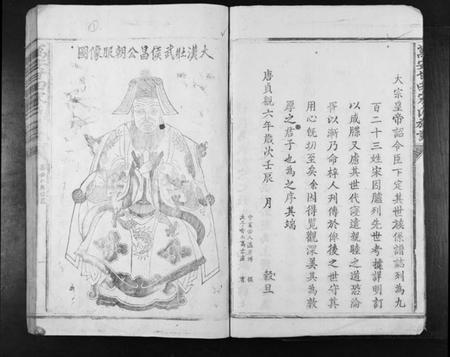 大宗皇帝詔令臣下定其世族係譜誌列為九
百二十三姓宋因臚列先世考據詳明訂
以成牒又慮其世代寖遠親睦之道恐淪
胥以漸乃命梓人列傳於係後之世守其
用心既切至矣余因得覽觀深美其為敦
厚之君子也為之序其端
唐貞觀六年歲次壬辰 月 穀旦
大漢壯武侯昌公朝服像圖